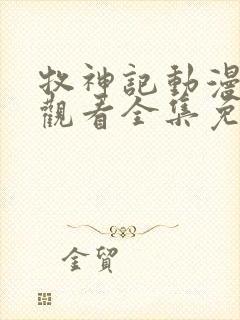 牧神記動漫
觀看全集免
金貿